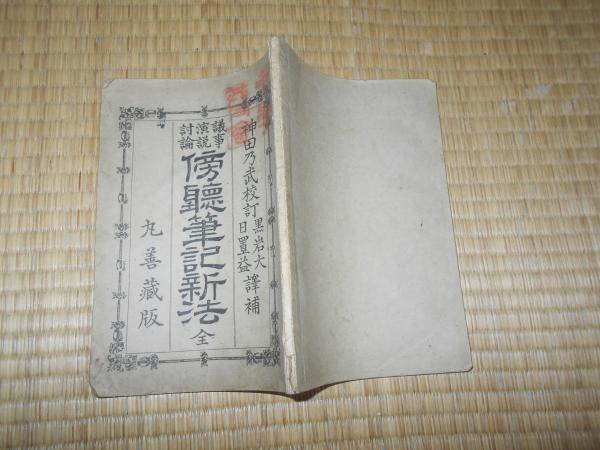 神田乃武校訂 黒岩大 日置益 譯補
議事
演説
討論
傍聽筆記新法 全
丸善藏版